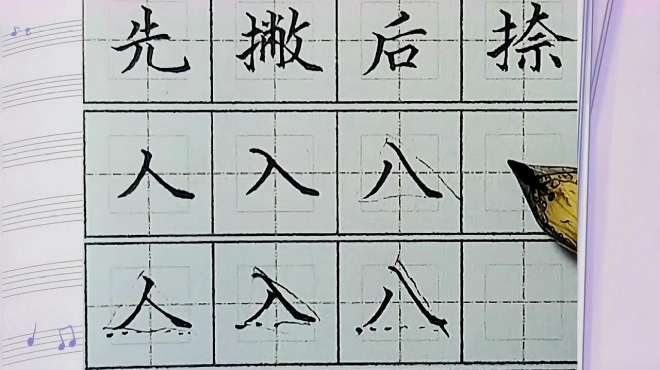 先撇后捺
人入八
人入八